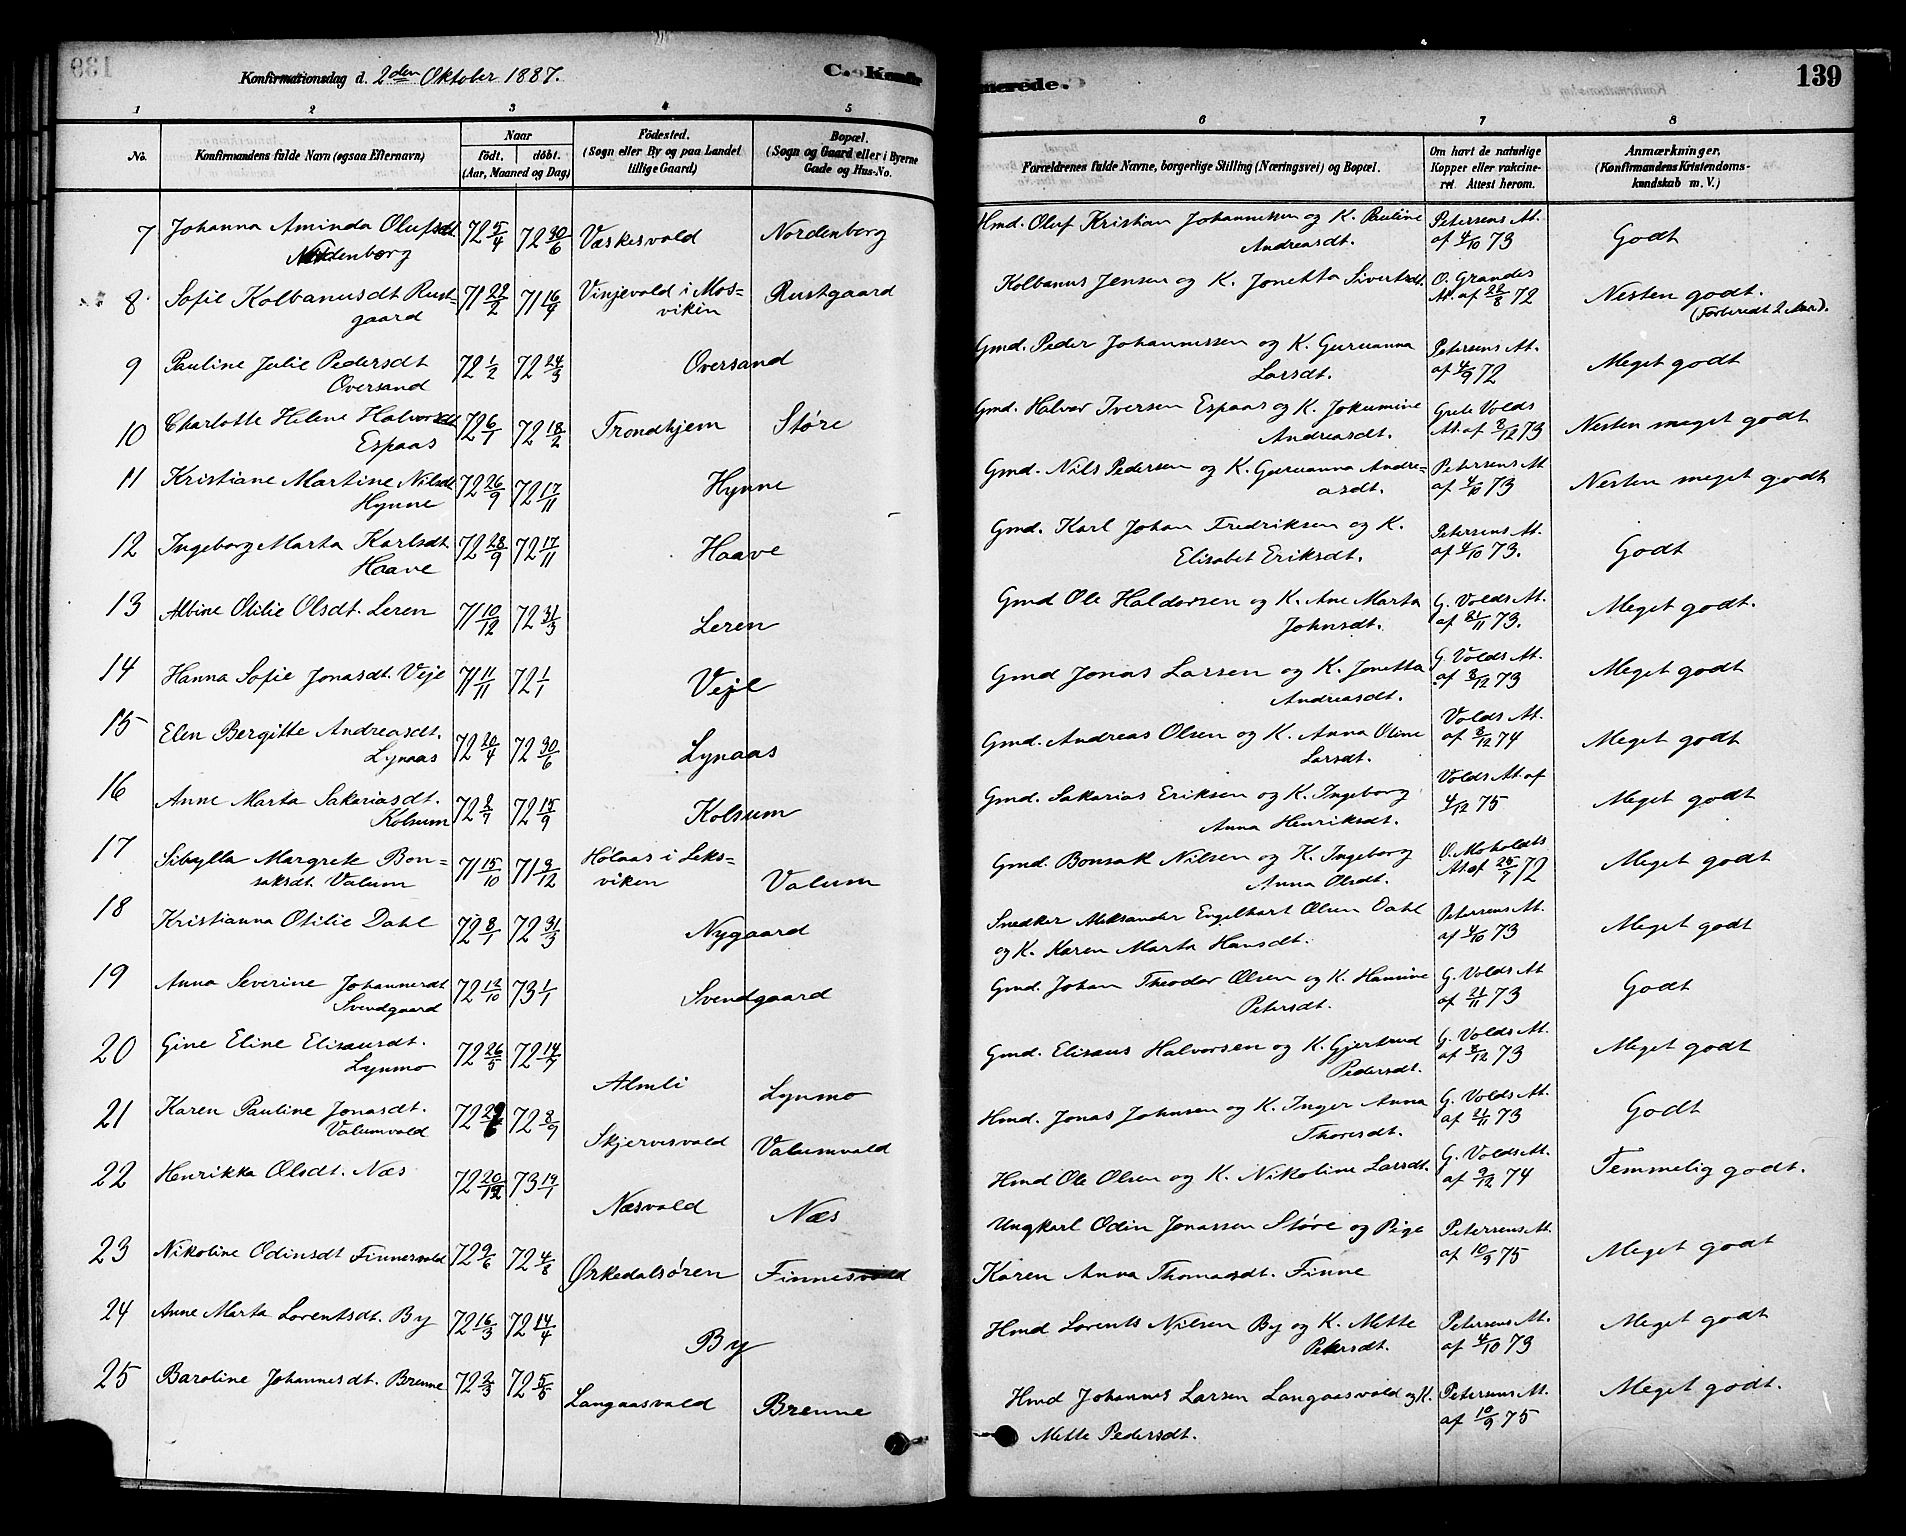 Konfirmationsdag d. 2den Oktober 1887.
C. Konfirmerede.
139
1 2 3 4 5 6 7 8
No.
Konfirmandens fulde Navn (ogsaa Efternavn)
Naar
født. døbt.
(Aar, Maaned og Dag)
Fødested.
(Sogn eller By og paa Landet
tillige Gaard)
Bopæl.
(Sogn og Gaard eller i Byerne
Gade og Hus-No.
Forældrenes fulde Navne, borgerlige Stilling (Næringsvei) og Bopæl.
Om havt de naturlige
Kopper eller vakcine-
ret. Attest herom.
Anmærkninger,
(Konfirmandens Kristendoms-
kundskab m. V.)
7 Johanna Aminda Olufsdt 72 5/4 72 30/6 Væskesvald Nordenborg Hmd. Oluf Kristian Johannessen og K. Pauline Petersens At. Godt
Nordenborg Andreasdt. af 4/10 73
8 Sofie Kolbanusdt Rust- 71 22/2 71 16/4 Vinjevald i Mos- Rustgaard Kolbanus Jensen og K. Jonetta Sivertsdt. O. Grandes Nesten godt.
gaard viken At. af 22/8 72 (Forberedt 2 Aar).
9 Pauline Julie Pedersdt 72 1/2 72 24/3 Oversand Gmd. Peder Johannessen og K. Guruanna Petersens At. Meget godt
Oversand Larsdt. af 4/9 72
10 Charlotte Helene Halvorsdt 72 6/1 72 18/2 Trondhjem Støre Gmd. Halvor Iversen Espaas og K. Jokumine Grete Volds Nesten meget godt
Espaas Andreasdt. At. af 8/12 73
11 Kristiane Martine Nilsdt 72 26/9 72 17/11 Hynne Gmd. Nils Pedersen og K. Guruanna Andre- Petersens At Nesten meget godt
Hynne asdt. af 4/10 73
12 Ingeborg Marta Karlsdt 72 28/9 72 17/11 Haave Gmd. Karl Johan Fredriksen og K. Petersens At. Godt
Haave Elisabet Eriksdt. af 4/10 73.
13 Albine Otilie Olsdt. Leren 71 10/12 72 31/3 Leren Gmd Ole Haldorsen og K. Ane Marta G. Volds At. Meget godt.
Johnsdt. af 21/11 73.
14 Hanna Sofie Jonasdt. Vejl 71 11/11 72 1/1 Vejl Gmd Jonas Larsen og K. Jonetta G. Volds At. Meget godt
Andreasdt. af 8/12 73
15 Elen Bergitte Andreasdt. 72 20/4 72 30/6 Lynaas Gmd. Andreas Olsen og K. Anna Oline Volds At. Meget godt
Lynaas Larsdt. af 8/12 74
16 Anne Marta Sakariasdt. 72 8/7 72 15/9 Kolsum Gmd. Sakarias Eriksen og K. Ingeborg Volds At. af Meget godt
Kolsum Anna Henriksdt. 4/12 75
17 Sibylla Margrete Bon- 71 15/10 71 9/12 Holaas i Leks- Valum Gmd. Bonsak Nilsen og K. Ingeborg O. Moholdts Meget godt
saksdt. Valum viken Anna Olsdt. At. af 25/7 72
18 Kristianna Otilie Dahl 72 8/1 72 31/3 Nygaard Snedker Aleksander Engelhart Olsen Dahl Petersens At. Meget godt
og K. Karen Marta Hansdt. af 4/10 73
19 Anna Severine Johannesdt 72 12/10 73 1/1 Svendgaard Gmd. Johan Theodor Olsen og K. Hansine G. Volds At Godt
Svendgaard Petersdt. af 21/11 73
20 Gine Eline Elisæusdt. 72 26/5 72 14/7 Almli Lynmo Gmd. Elisæus Halvorsen og K. Gjertrud G. Volds At. Meget godt
Lynmo Pedersdt. af 8/12 73
21 Karen Pauline Jonasdt. 72 72 8/9 Skjervesvald Valumvald Hmd. Jonas Johnsen og K. Inger Anna G. Volds At. Godt
Valumvald Thoresdt. af 21/11 73
22 Henrikka Olsdt. Næs 72 20/12 73 19/1 Næsvald Næs Hmd Ole Olsen og K. Nikoline Larsdt. G. Volds At. Temmelig godt.
af 9/12 74
23 Nikoline Odinsdt Finnesvald 72 9/6 72 4/8 Ørkedalsøren Finnesvald Ungkarl Odin Jonassen Støre og Pige Petersens At. Meget godt
Karen Anna Thomasdt. Finne af 10/9 75
24 Anne Marta Lorentsdt. By 72 16/3 72 14/4 By Hmd Lorents Nilsen By og K. Mette Petersens At. Meget godt
Petersdt. af 4/10 73
25 Baroline Johannesdt. Brenne 72 2/3 72 5/5 Langaasvald Brenne Hmd Johannes Larsen Langaasvald og K. Petersens At. Meget godt.
Mette Pedersdt. af 10/9 75